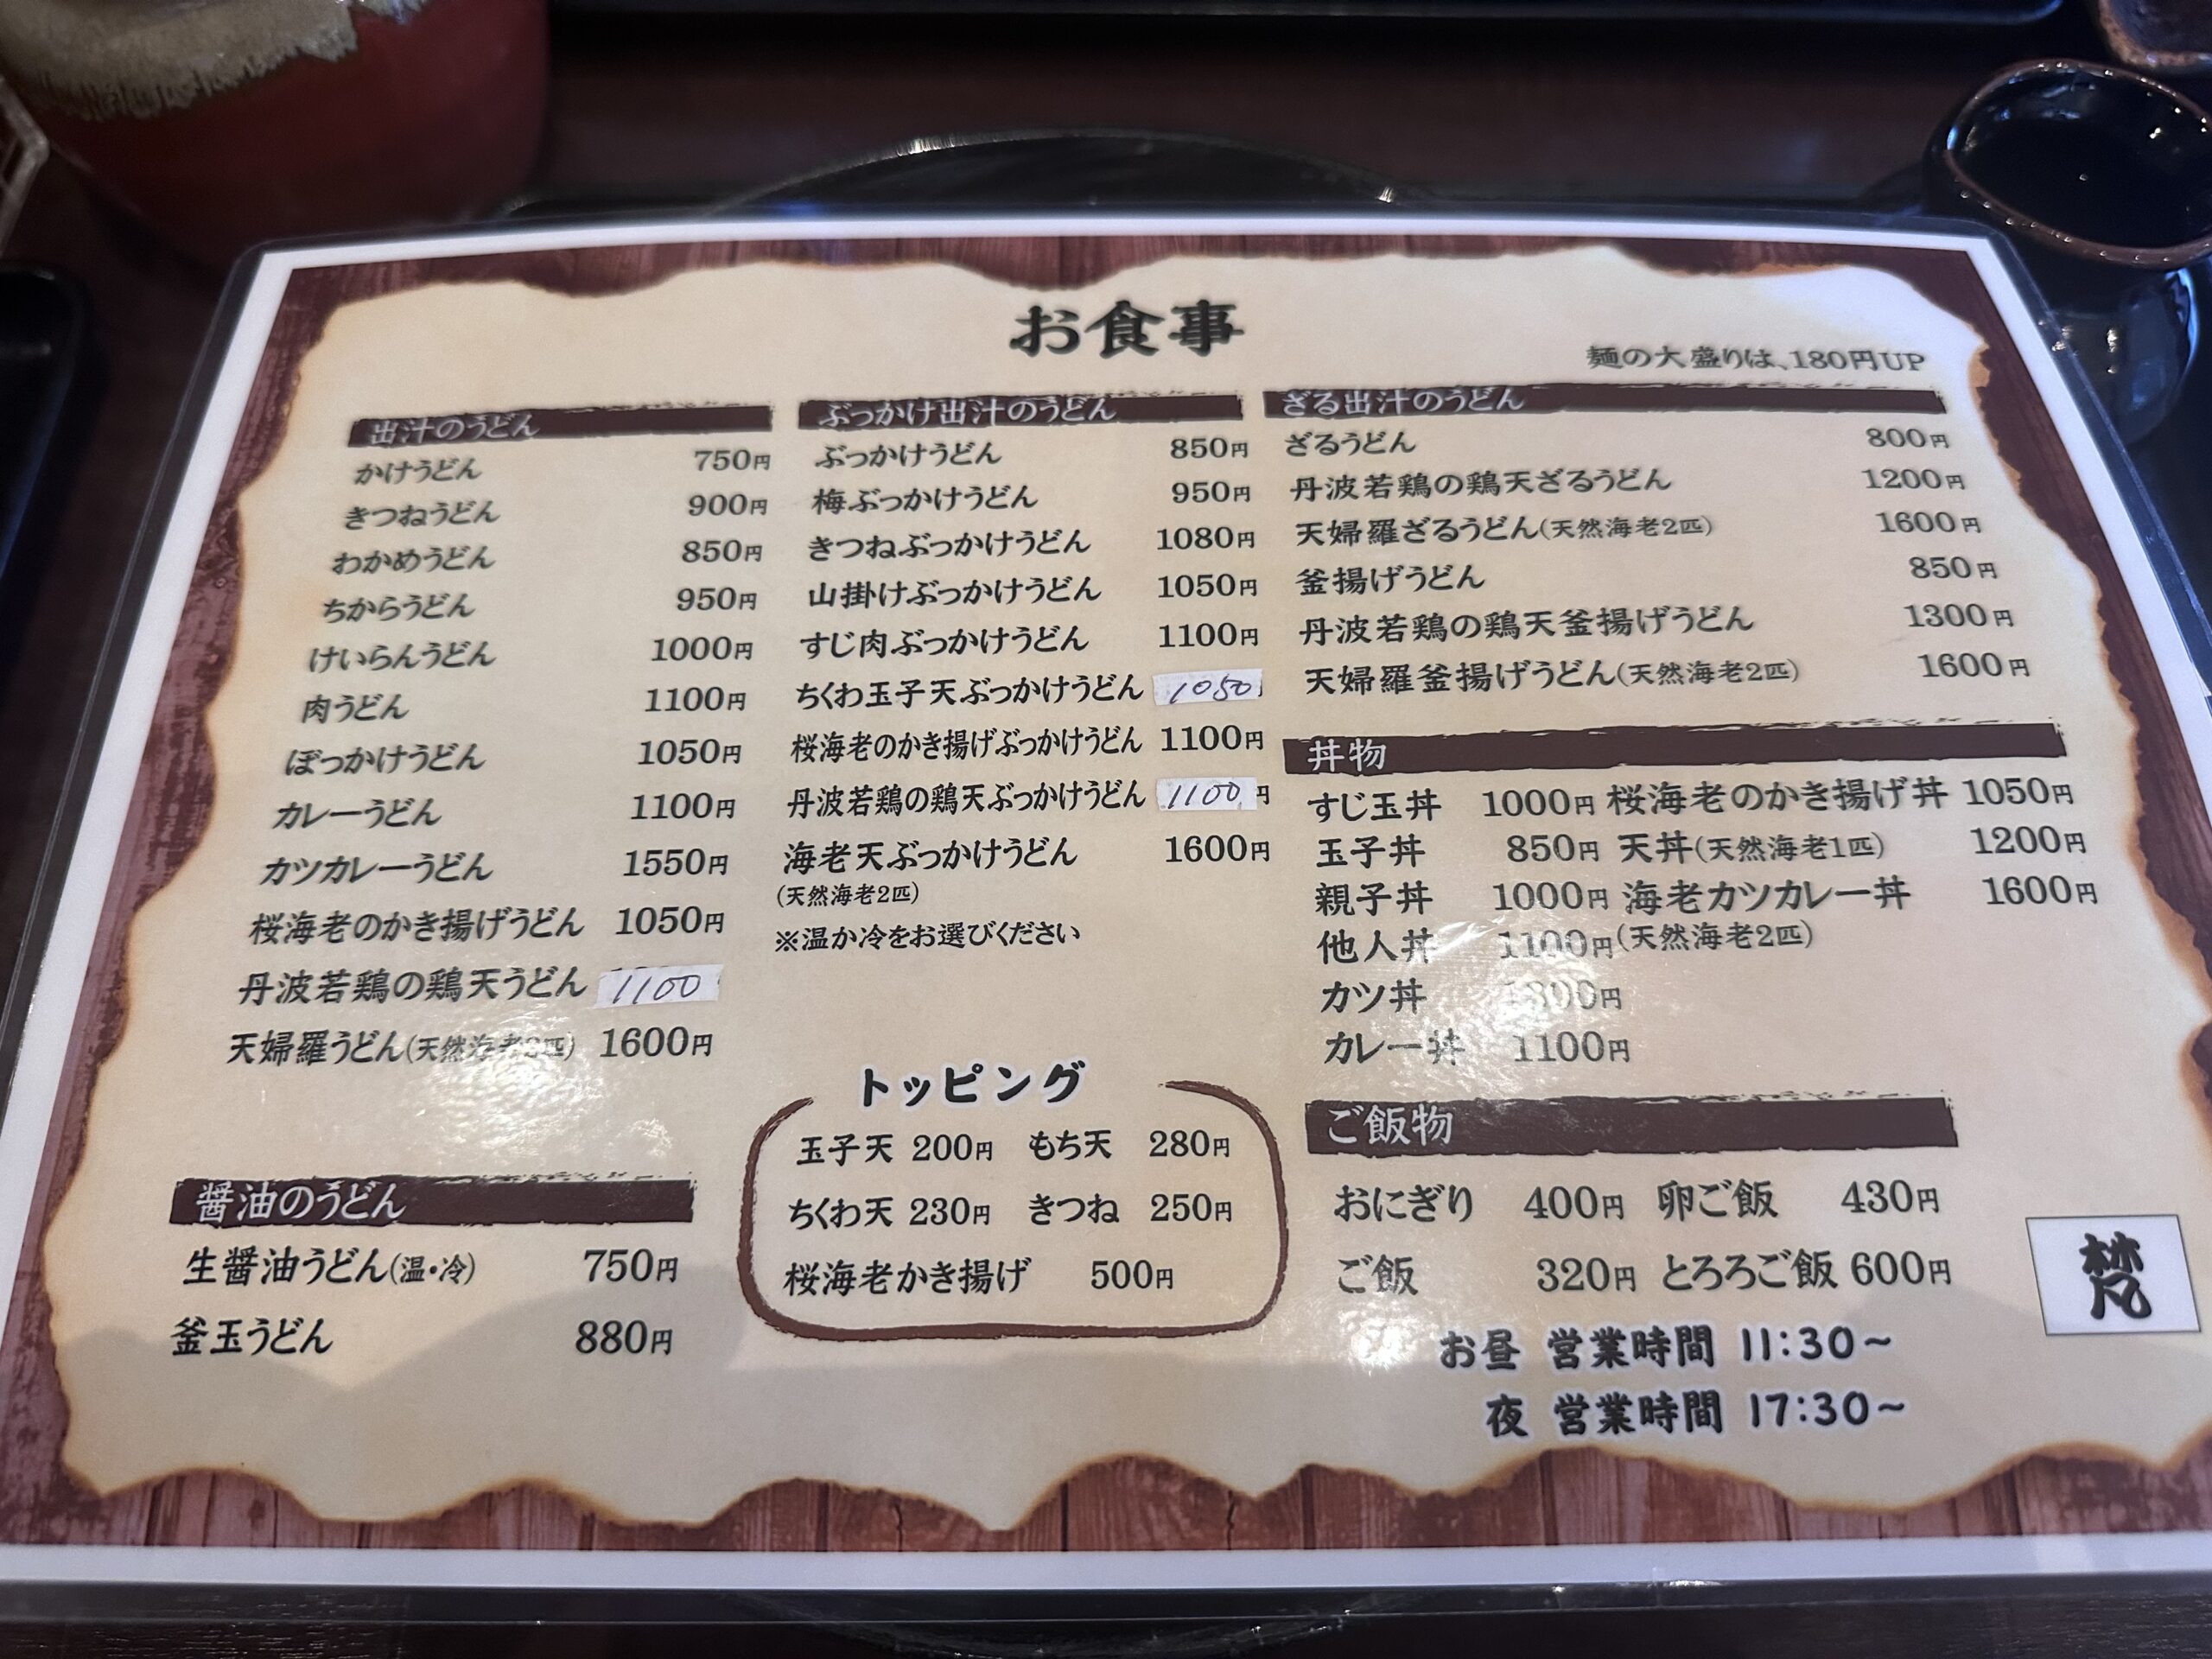 お食事
麺の大盛りは、180円UP
出汁のうどん
かけうどん 750円
きつねうどん 900円
わかめうどん 850円
ちからうどん 950円
けいらんうどん 1000円
肉うどん 1100円
ぼっかけうどん 1050円
カレーうどん 1100円
カツカレーうどん 1550円
桜海老のかき揚げうどん 1050円
丹波若鶏の鶏天うどん 1100
天婦羅うどん(天然海老2匹) 1600円
醤油のうどん
生醤油うどん(温・冷) 750円
釜玉うどん 880円
ぶっかけ出汁のうどん
ぶっかけうどん 850円
梅ぶっかけうどん 950円
きつねぶっかけうどん 1080円
山掛けぶっかけうどん 1050円
すじ肉ぶっかけうどん 1100円
ちくわ玉子天ぶっかけうどん 1050
桜海老のかき揚げぶっかけうどん 1100円
丹波若鶏の鶏天ぶっかけうどん 1100円
海老天ぶっかけうどん 1600円
(天然海老2匹)
※温か冷をお選びください
トッピング
玉子天 200円 もち天 280円
ちくわ天 230円 きつね 250円
桜海老かき揚げ 500円
ざる出汁のうどん
ざるうどん 800円
丹波若鶏の鶏天ざるうどん 1200円
天婦羅ざるうどん(天然海老2匹) 1600円
釜揚げうどん 850円
丹波若鶏の鶏天釜揚げうどん 1300円
天婦羅釜揚げうどん(天然海老2匹) 1600円
丼物
すじ玉丼 1000円 桜海老のかき揚げ丼 1050円
玉子丼 850円 天丼(天然海老1匹) 1200円
親子丼 1000円 海老カツカレー丼 1600円
他人丼 1100円 (天然海老2匹)
カツ丼
カレー丼 1100円
ご飯物
おにぎり 400円 卵ご飯 430円
ご飯 320円 とろろご飯 600円
お昼 営業時間 11:30～
夜 営業時間 17:30～
梵